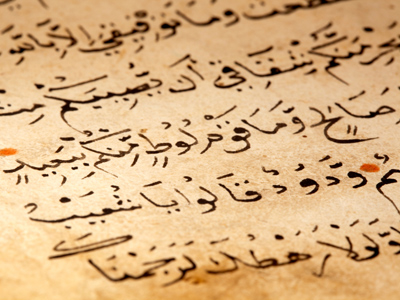 وَمَا تَوْفِيقِي إِلَّا
شِقَاقِي أَنْ يُصِيبَكُمْ
صَالِحٍ وَمَا قَوْمُ لُوطٍ مِنْكُمْ بِبَعِيدٍ
وَدُودٌ قَالُوا يَا شُعَيْبُ
وَلَوْلَا رَهْطُكَ لَرَجَمْنَاكَ